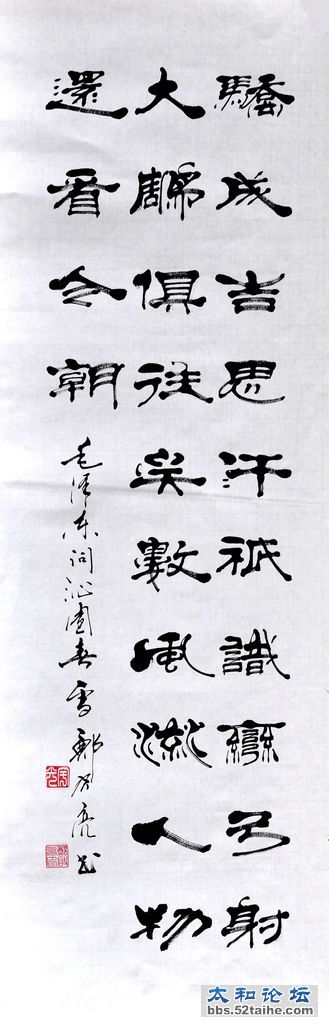 驕成吉思汗祇識彎弓射
大雕俱往矣數風流人物
還看今朝
毛泽东词沁園春雪
太和论坛
bbs.52taihe.com